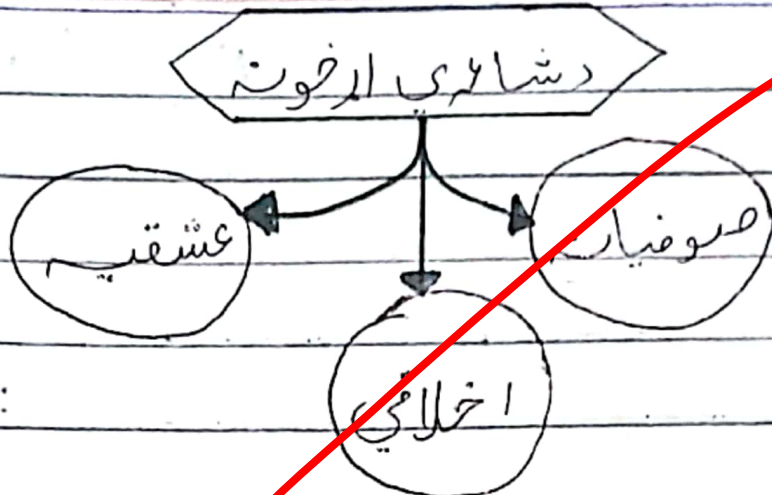 د شاعری اړخونه
صوفیانه عشقیه
اخلاقي